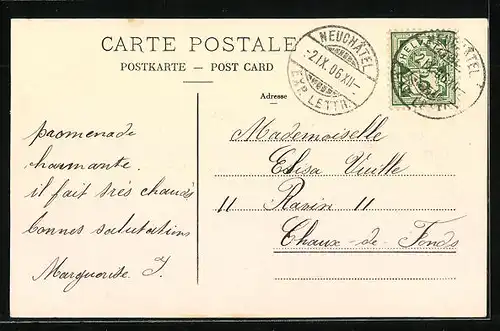 CARTE POSTALE
POSTKARTE — POST CARD
NEUCHÂTEL
-2.IX.06.XII-
EXP. LETTR.
HELVETIA
NEUCHÂTEL
Adresse
promenade
charmante.
il fait très chauds
bonnes salutations
Marguerite J.
Mademoiselle
Elisa Vuille
11 Ravin 11
Chaux-de-Fonds